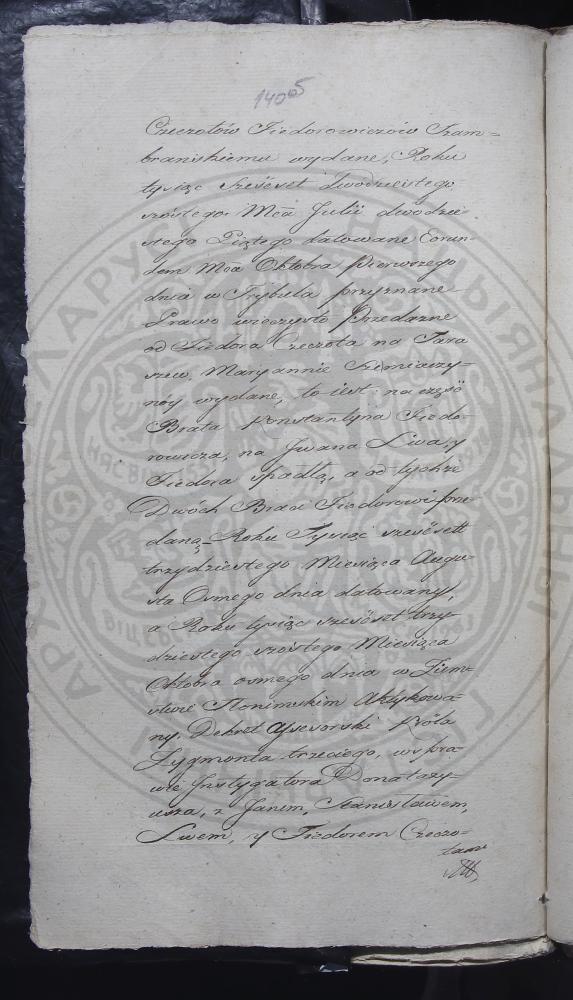 1405
Czeczotów Fiedorowiczów Tram=
branskiemu wydane, Roku
tysiąc szescset dwodziestego
szostego Mca Julii dwodzie=
stego Piątego datowane Eorun=
dem Mca Oktobra Pierwszego
dnia w Trybula przyznane
Prawo wieczysto Przedazne
od Fiedora Czeczota na Tara
szew, Maryannie Siemiaszy=
noy wydane, to iest na część
Brata Konstantyna Fiedo=
rowicza, na Jwana Lwa, y
Fiedora spadłą, a od tychże
Dwóch Braci Fiedorowi prze=
daną Roku Tysiąc szescsett
trzydziestego Miesiąca Augu=
sta Osmego dnia datowany,
a Roku tysiąc szescset trzy=
dziestego szostego Miesiąca
Oktobra osmego dnia w Ziem=
stwie Słonimskim Aktykowa=
ny. Dekret Assesorski Króla
Zygmonta trzeciego, w spra=
wie Jnstygatora Donatary=
usza, z Janem, Stanisławem,
Lwem, y Fiedorem Czeczo=
tami
АРХ
БЕЛАРУСІ
НЯСВІЖ